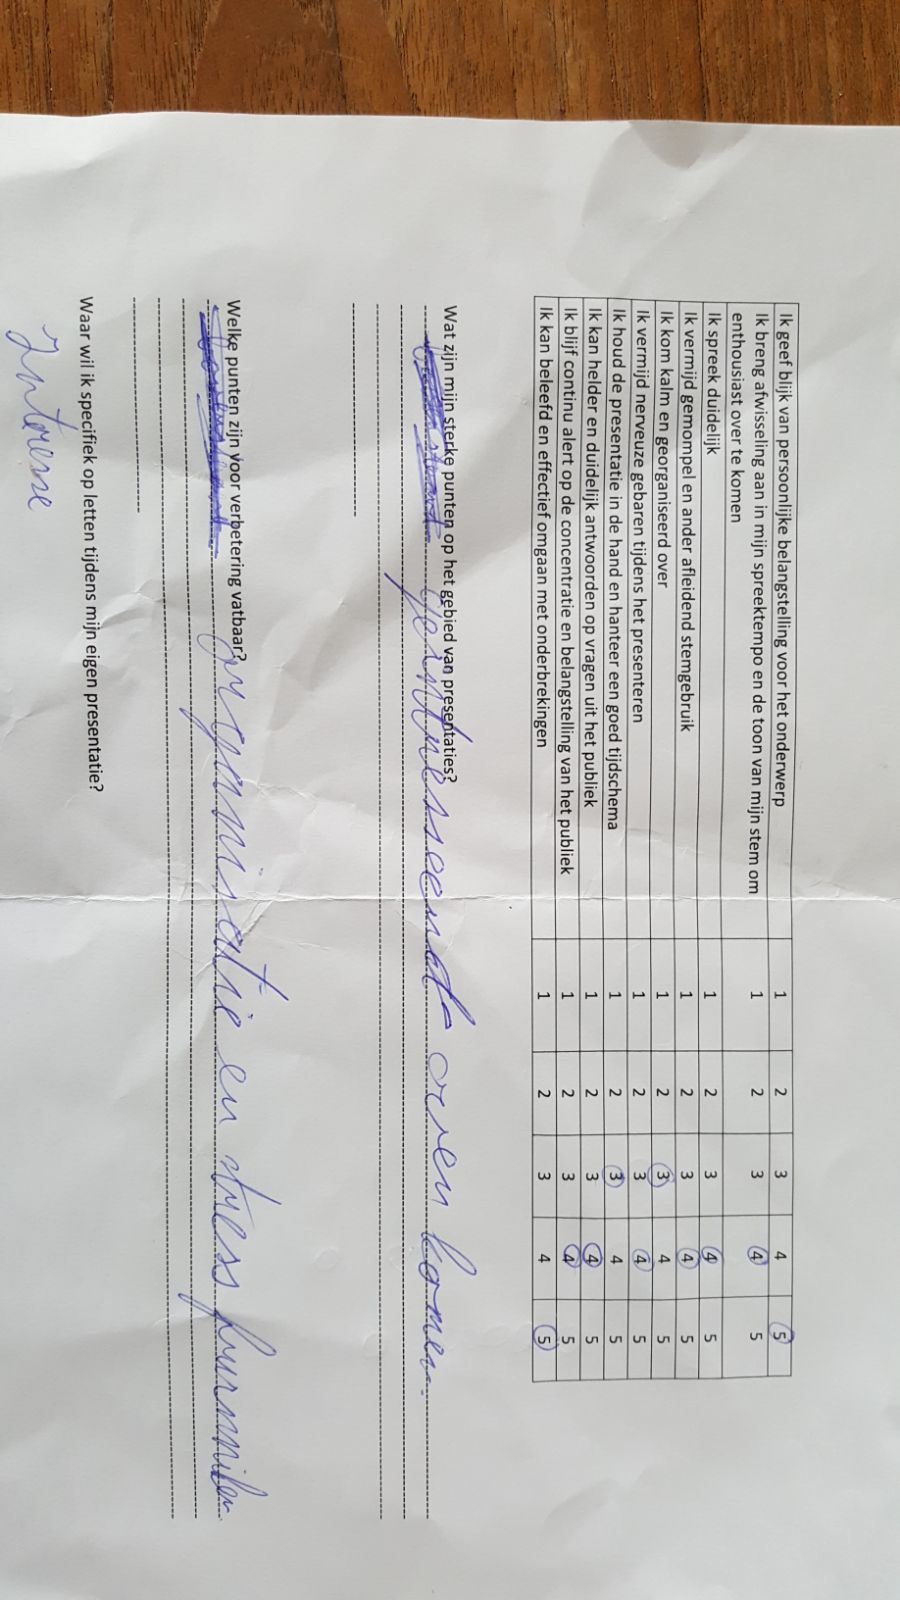 Ik geef blijk van persoonlijke belangstelling voor het onderwerp 1 2 3 4 5
Ik breng afwisseling aan in mijn spreektempo en de toon van mijn stem om 1 2 3 4 5
enthousiast over te komen
Ik spreek duidelijk 1 2 3 4 5
Ik vermijd gemompel en ander afleidend stemgebruik 1 2 3 4 5
Ik kom kalm en georganiseerd over 1 2 3 4 5
Ik vermijd nerveuze gebaren tijdens het presenteren 1 2 3 4 5
Ik houd de presentatie in de hand en hanteer een goed tijdschema 1 2 3 4 5
Ik kan helder en duidelijk antwoorden op vragen uit het publiek 1 2 3 4 5
Ik blijf continu alert op de concentratie en belangstelling van het publiek 1 2 3 4 5
Ik kan beleefd en effectief omgaan met onderbrekingen 1 2 3 4 5
Wat zijn mijn sterke punten op het gebied van presentaties?
over komen.
Welke punten zijn voor verbetering vatbaar?
organisatie en stress
Waar wil ik specifiek op letten tijdens mijn eigen presentatie?
Intresse